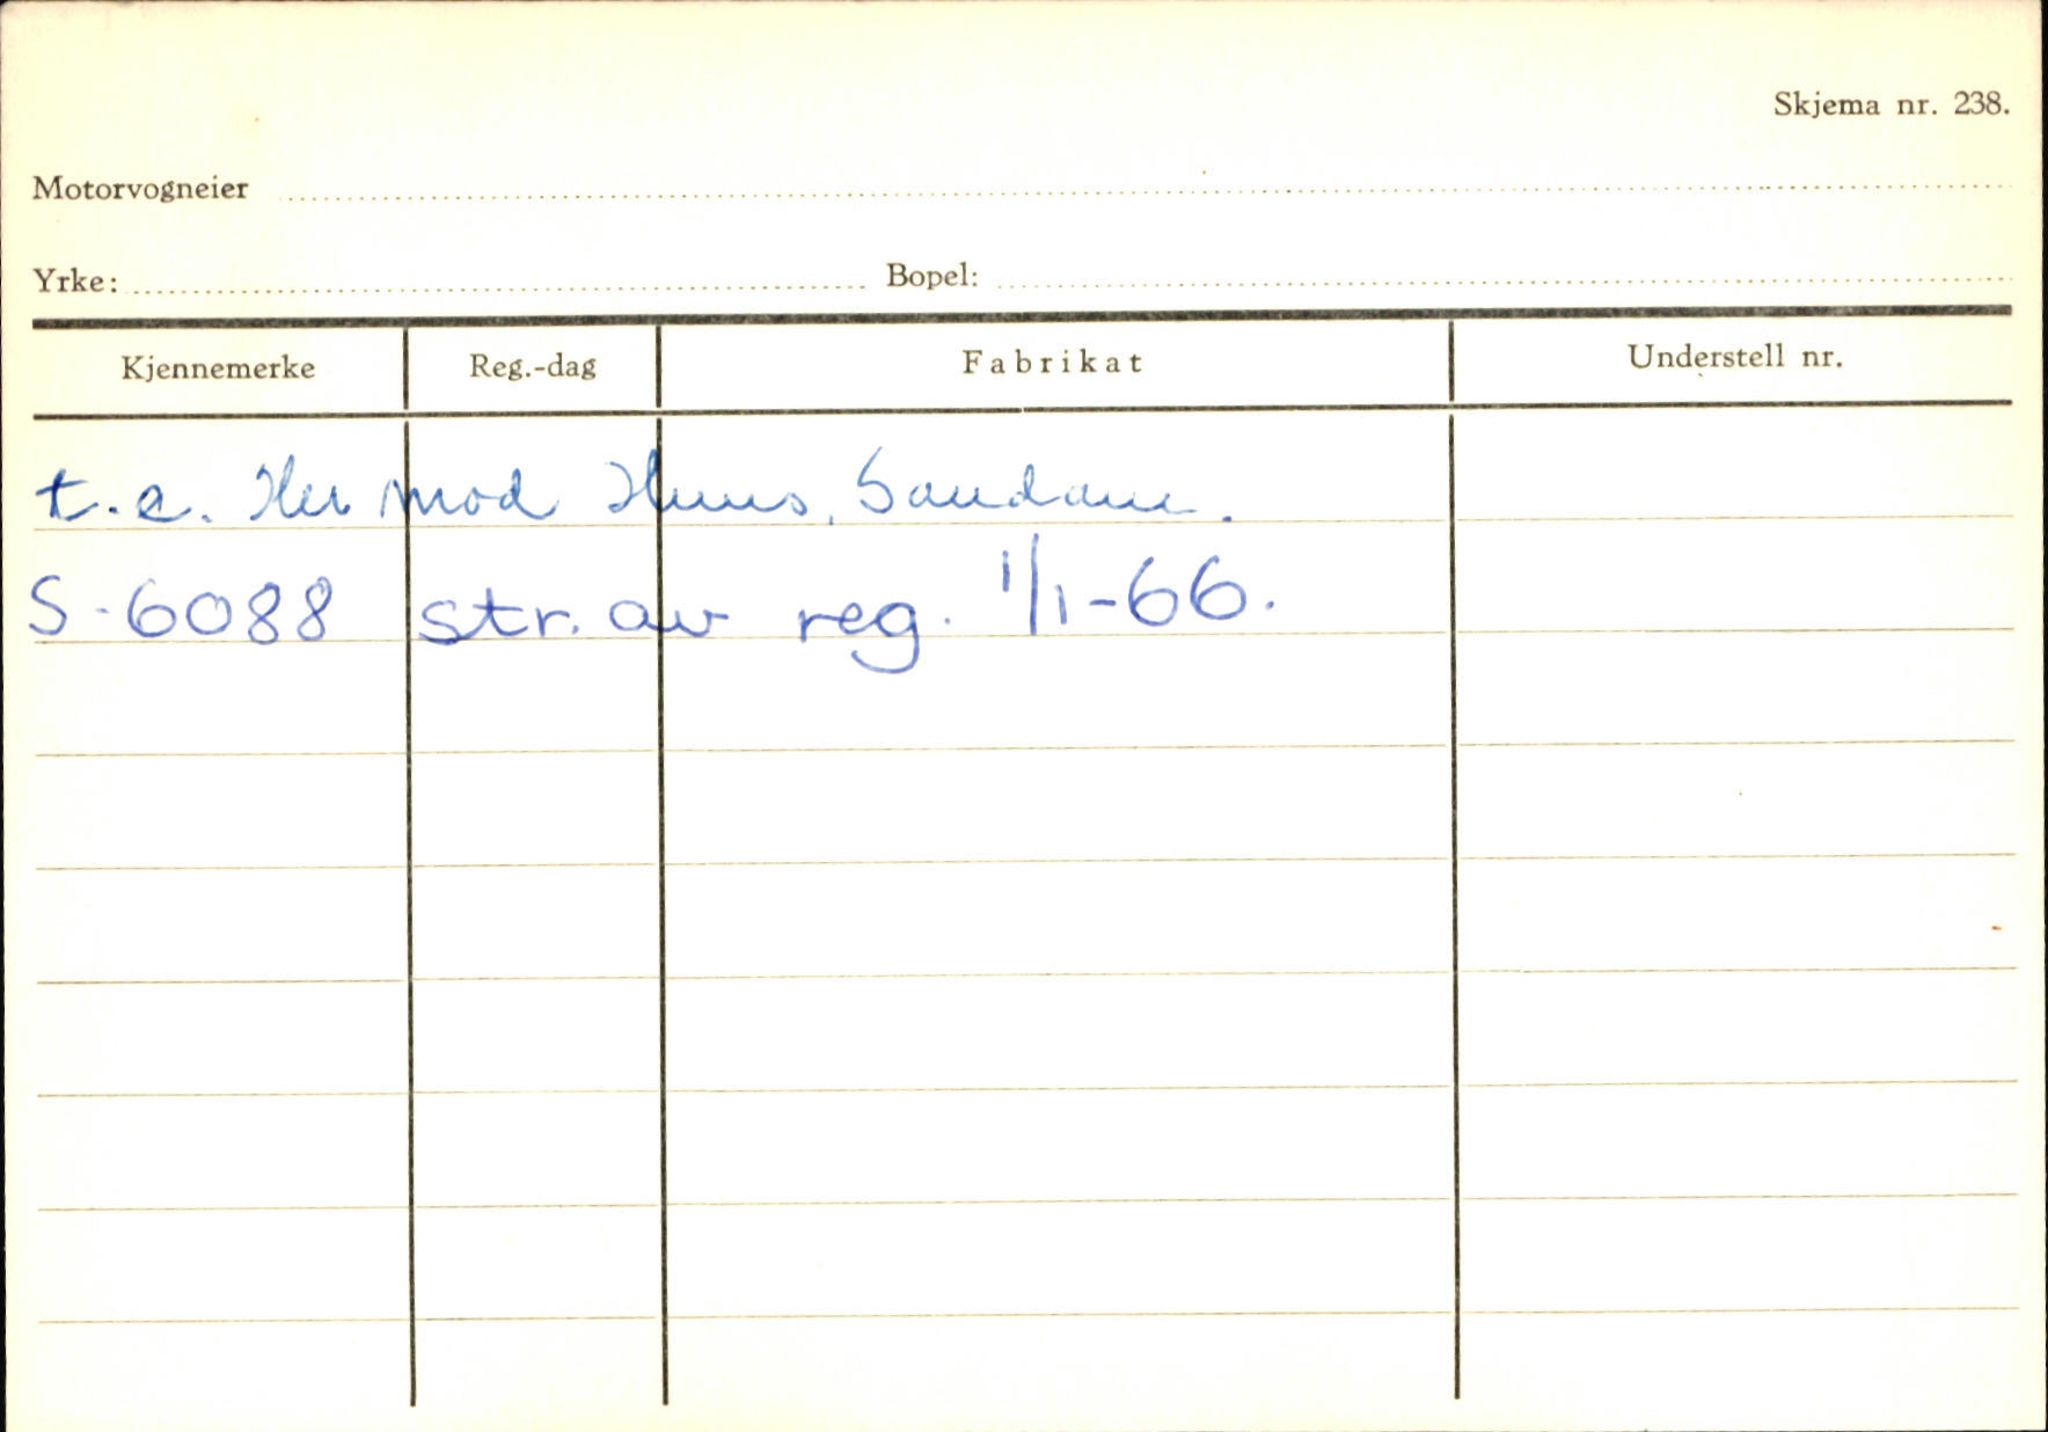 Skjema nr. 238.
Motorvogneier
Yrke: Bopel:
Kjennemerke Reg.-dag Fabrikat Understell nr.
t.e. Hermod Huus, Sandane.
S-6088 str. av reg. 1/1-66.